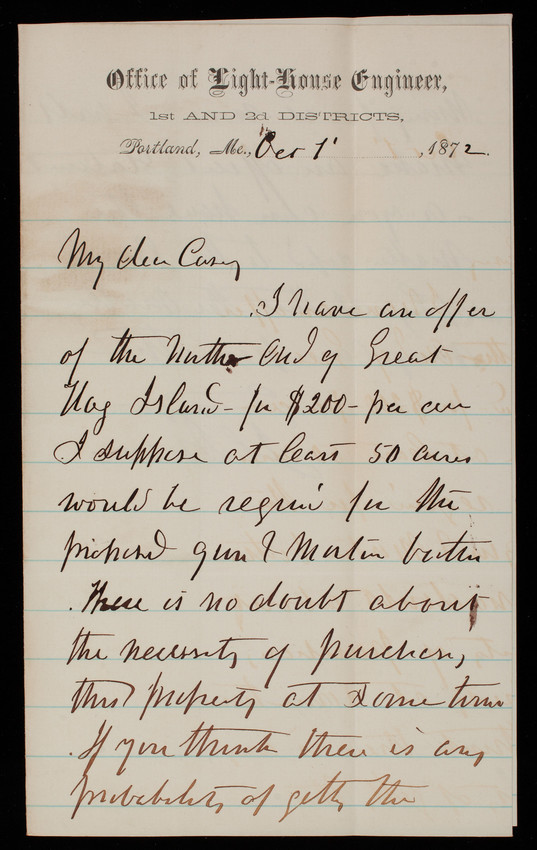 Office of Light-House Engineer,
1st AND 2d DISTRICTS,
Portland, Me., Dec 1st, 1872.
My dear Casey
I have an offer
of the Northern End of Great
Hog Island - for $200 - per acre
I suppose at least 50 acres
would be requird for the
proposed gun & Mortar batteries
There is no doubt about
the necessity of purchasing
this property at some time
If you think there is any
probability of getting the